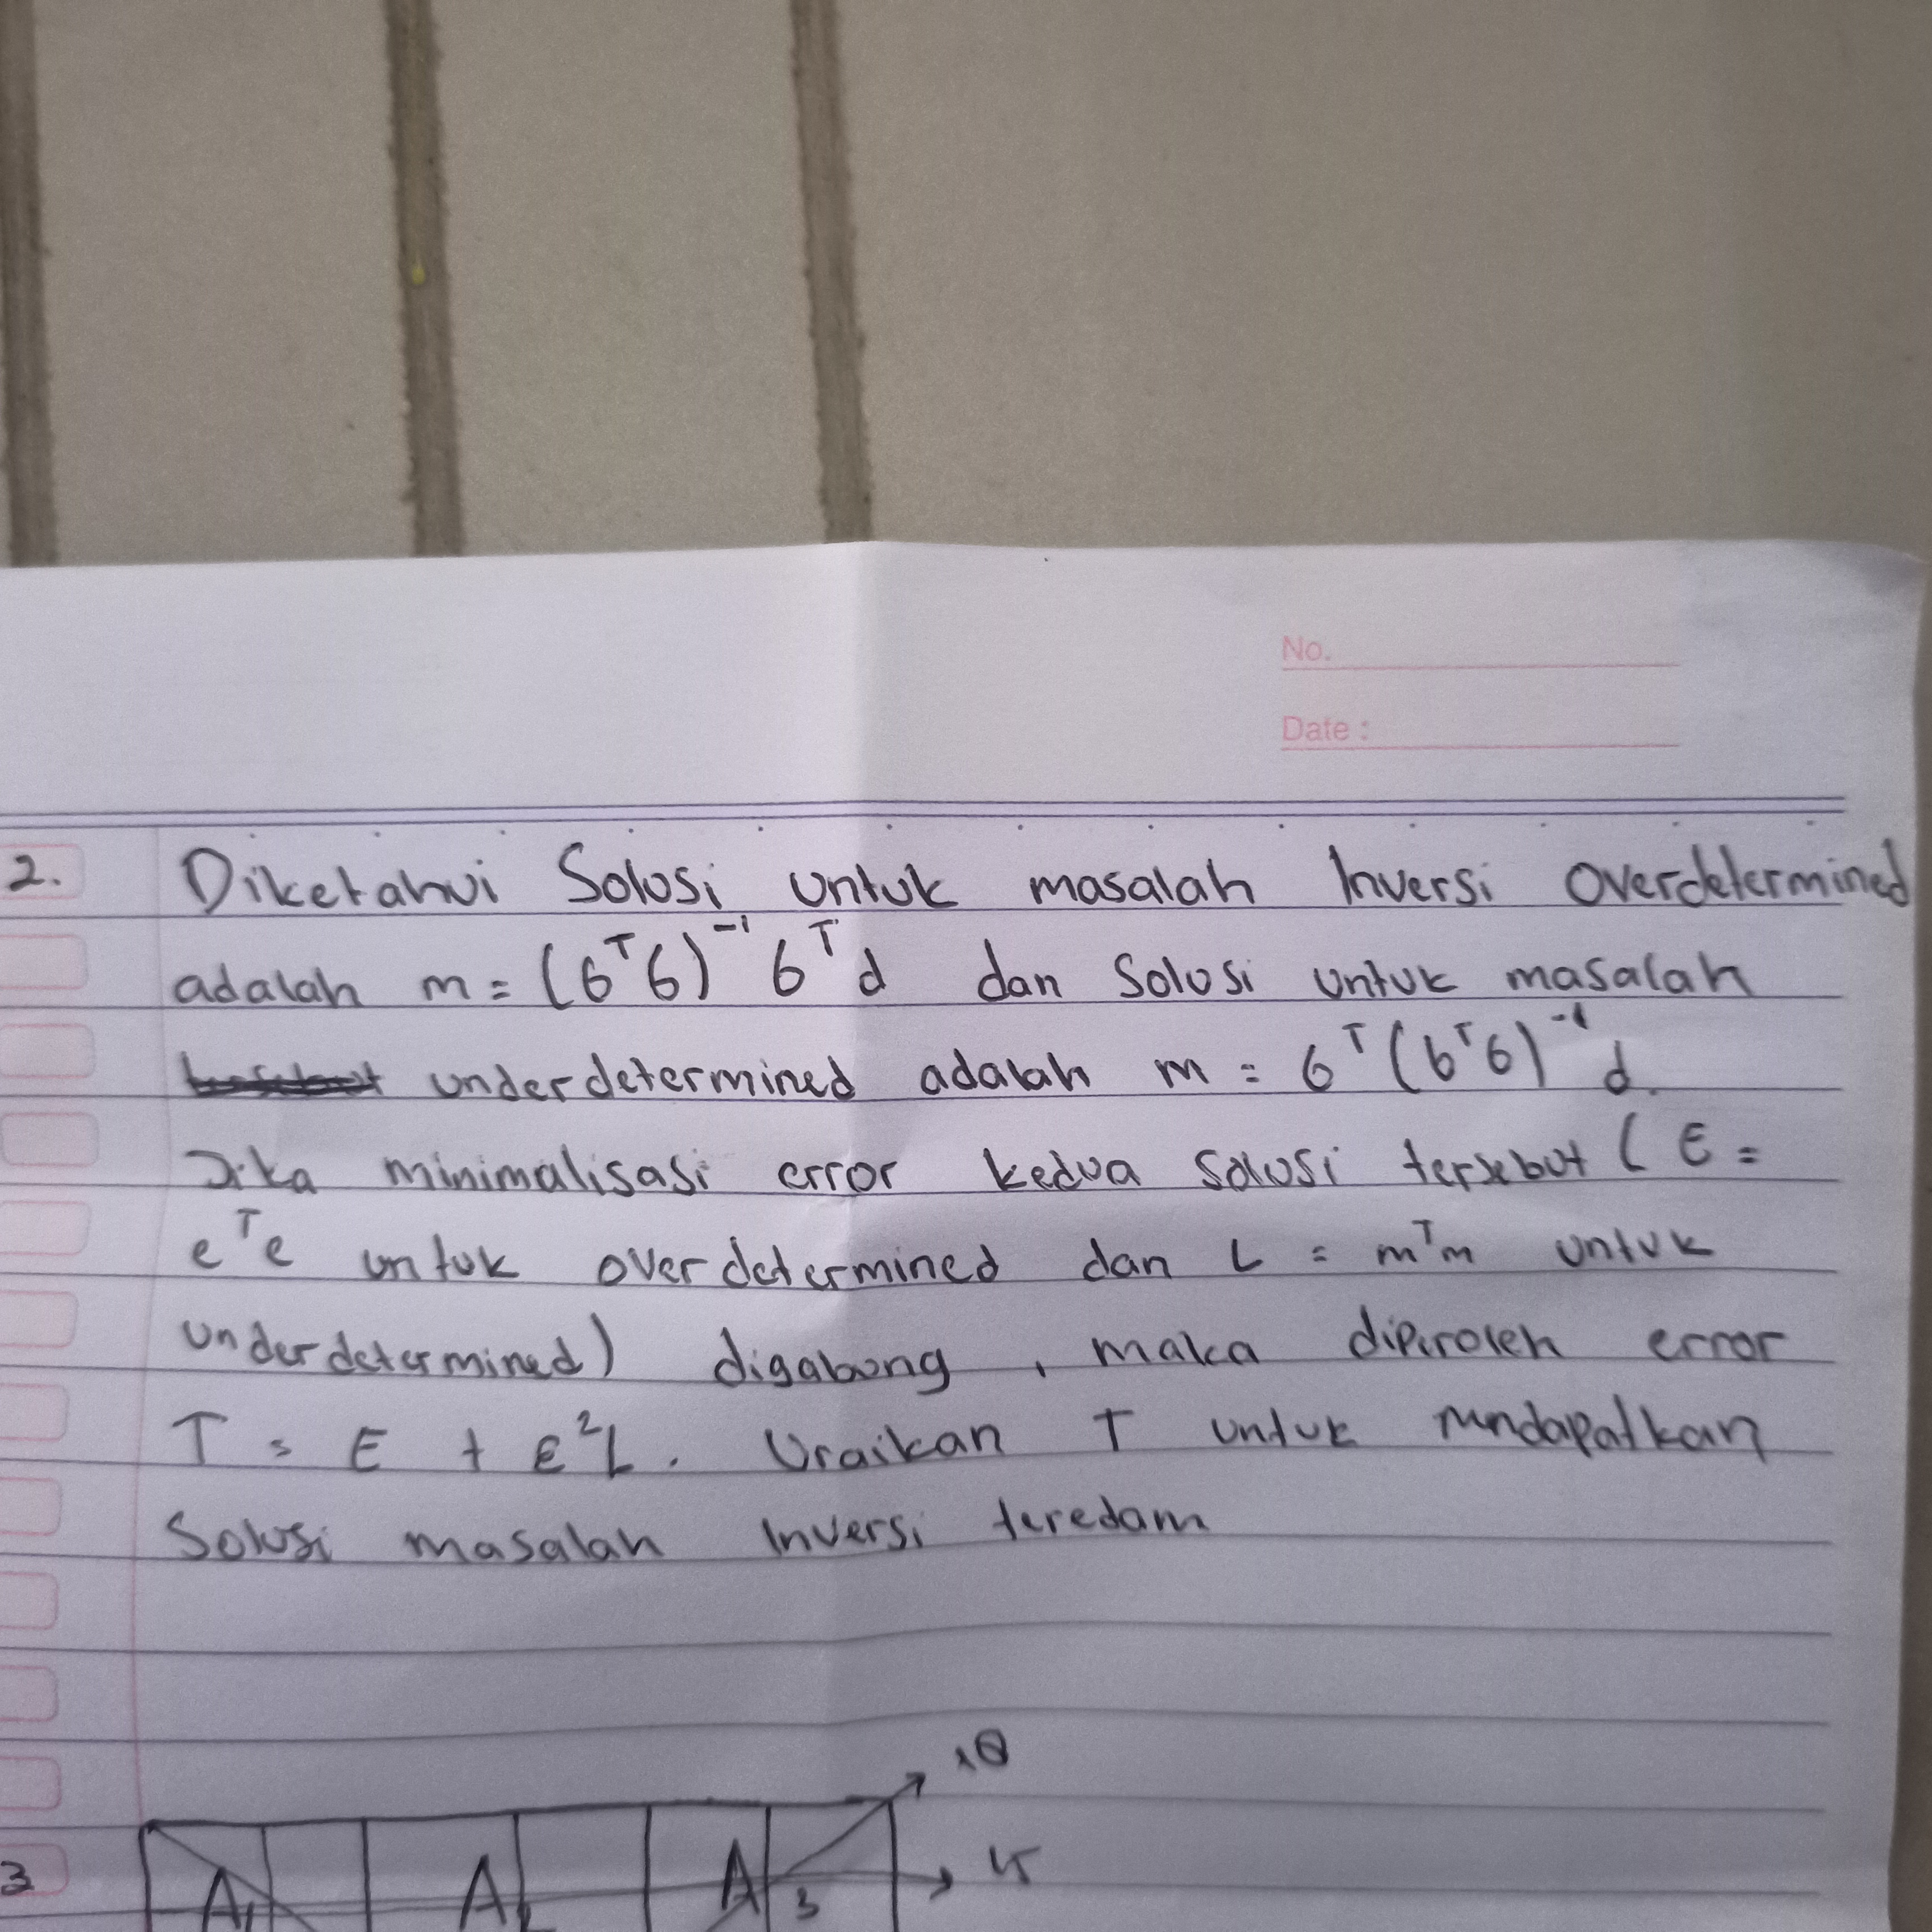 No.
Date :
2. Diketahui Solusi untuk masalah Inversi Overdetermined
adalah m = (6ᵀ6)⁻¹ 6ᵀd dan Solusi untuk masalah
underdetermined adalah m = 6ᵀ(6ᵀ6)⁻¹ d.
Jika minimalisasi error kedua solusi tersebut ( E =
eᵀe untuk overdetermined dan L = mᵀm untuk
underdetermined) digabung, maka diperoleh error
T = E + ε²L. Uraikan T untuk mendapatkan
Solusi masalah Inversi teredam
3
A₁ A₂ A₃